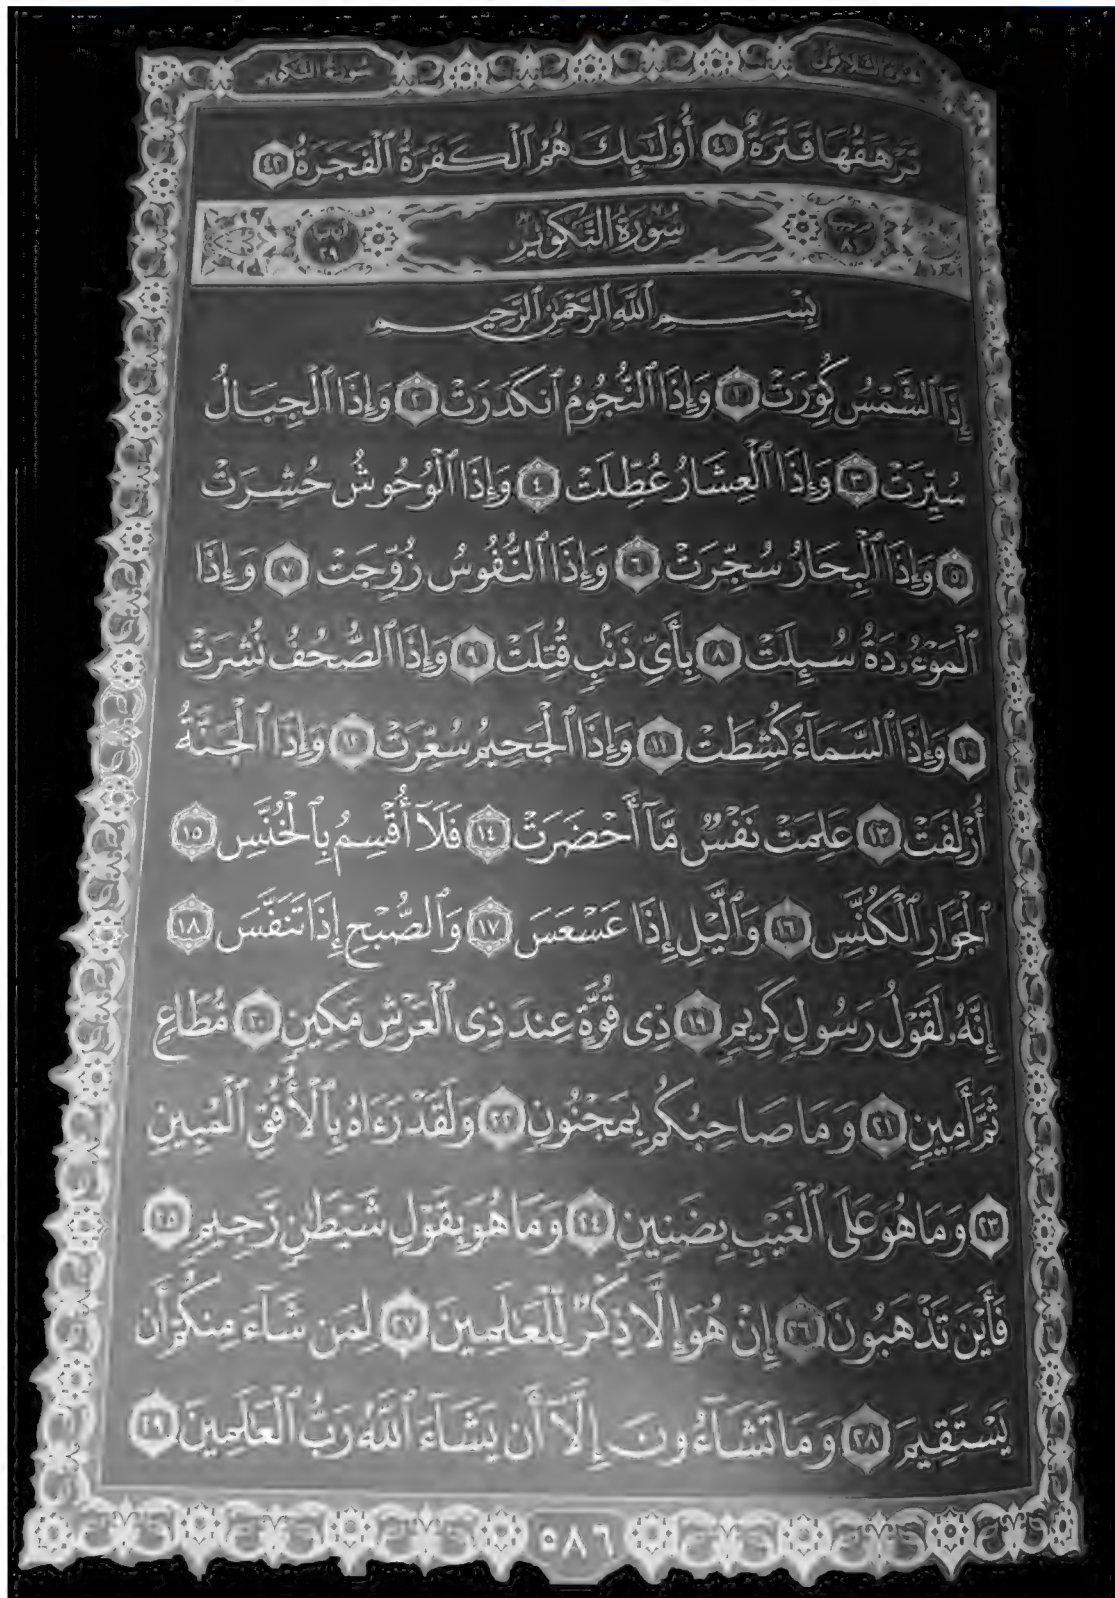 الجزء الثلاثون سورة التكوير
تَرْهَقُهَا قَتَرَةٌ ٤١ أُوْلَٰٓئِكَ هُمُ ٱلْكَفَرَةُ ٱلْفَجَرَةُ ٤٢
ترتيبها ٨١ سُورَةُ التَّكْوِيرِ آياتها ٢٩
بِسْمِ ٱللَّهِ ٱلرَّحْمَٰنِ ٱلرَّحِيمِ
إِذَا ٱلشَّمْسُ كُوِّرَتْ ١ وَإِذَا ٱلنُّجُومُ ٱنكَدَرَتْ ٢ وَإِذَا ٱلْجِبَالُ
سُيِّرَتْ ٣ وَإِذَا ٱلْعِشَارُ عُطِّلَتْ ٤ وَإِذَا ٱلْوُحُوشُ حُشِرَتْ
٥ وَإِذَا ٱلْبِحَارُ سُجِّرَتْ ٦ وَإِذَا ٱلنُّفُوسُ زُوِّجَتْ ٧ وَإِذَا
ٱلْمَوْءُۥدَةُ سُئِلَتْ ٨ بِأَيِّ ذَنۢبٍ قُتِلَتْ ٩ وَإِذَا ٱلصُّحُفُ نُشِرَتْ
١٠ وَإِذَا ٱلسَّمَآءُ كُشِطَتْ ١١ وَإِذَا ٱلْجَحِيمُ سُعِّرَتْ ١٢ وَإِذَا ٱلْجَنَّةُ
أُزْلِفَتْ ١٣ عَلِمَتْ نَفْسٌ مَّآ أَحْضَرَتْ ١٤ فَلَآ أُقْسِمُ بِٱلْخُنَّسِ ١٥
ٱلْجَوَارِ ٱلْكُنَّسِ ١٦ وَٱلَّيْلِ إِذَا عَسْعَسَ ١٧ وَٱلصُّبْحِ إِذَا تَنَفَّسَ ١٨
إِنَّهُۥ لَقَوْلُ رَسُولٍ كَرِيمٍ ١٩ ذِى قُوَّةٍ عِندَ ذِى ٱلْعَرْشِ مَكِينٍ ٢٠ مُّطَاعٍ
ثَمَّ أَمِينٍ ٢١ وَمَا صَاحِبُكُم بِمَجْنُونٍ ٢٢ وَلَقَدْ رَءَاهُ بِٱلْأُفُقِ ٱلْمُبِينِ
٢٣ وَمَا هُوَ عَلَى ٱلْغَيْبِ بِضَنِينٍ ٢٤ وَمَا هُوَ بِقَوْلِ شَيْطَٰنٍ رَّجِيمٍ ٢٥
فَأَيْنَ تَذْهَبُونَ ٢٦ إِنْ هُوَ إِلَّا ذِكْرٌ لِّلْعَٰلَمِينَ ٢٧ لِمَن شَآءَ مِنكُمْ أَن
يَسْتَقِيمَ ٢٨ وَمَا تَشَآءُونَ إِلَّآ أَن يَشَآءَ ٱللَّهُ رَبُّ ٱلْعَٰلَمِينَ ٢٩
٥٨٦